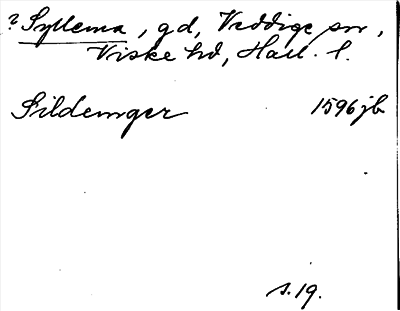 ? Syllema, gd, Veddige sn,
Viske hd, Hall. l.
Sildemger 1596 jb
s. 19.